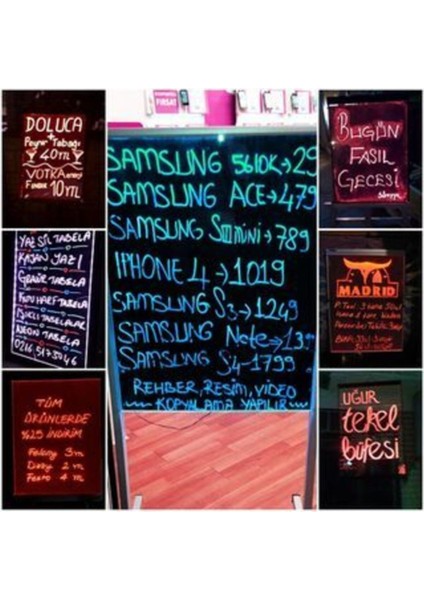 DOLUCA
+
Peynir Tabağı
40 TL
VOTKA
10 TL
YAZ SİL TABELA
KAYAN YAZI
GERGİR TABELA
KUTU HARF TABELA
IŞIKLI TABELALAR
NEON TABELA
TÜM
ÜRÜNLERDE
%25 İNDİRİM
3 TL
2 TL
4 TL
FIRSAT
SAMSUNG 5610K→29
SAMSUNG ACE→479
SAMSUNG SIII MINI→789
IPHONE 4→1019
SAMSUNG S3→1249
SAMSUNG Note→139
SAMSUNG S4-1799
REHBER, RESİM, VİDEO
KOPYALAMA YAPILIR
BUGÜN
FASIL
GECESİ
MADRID
UĞUR
tekel
büfesi